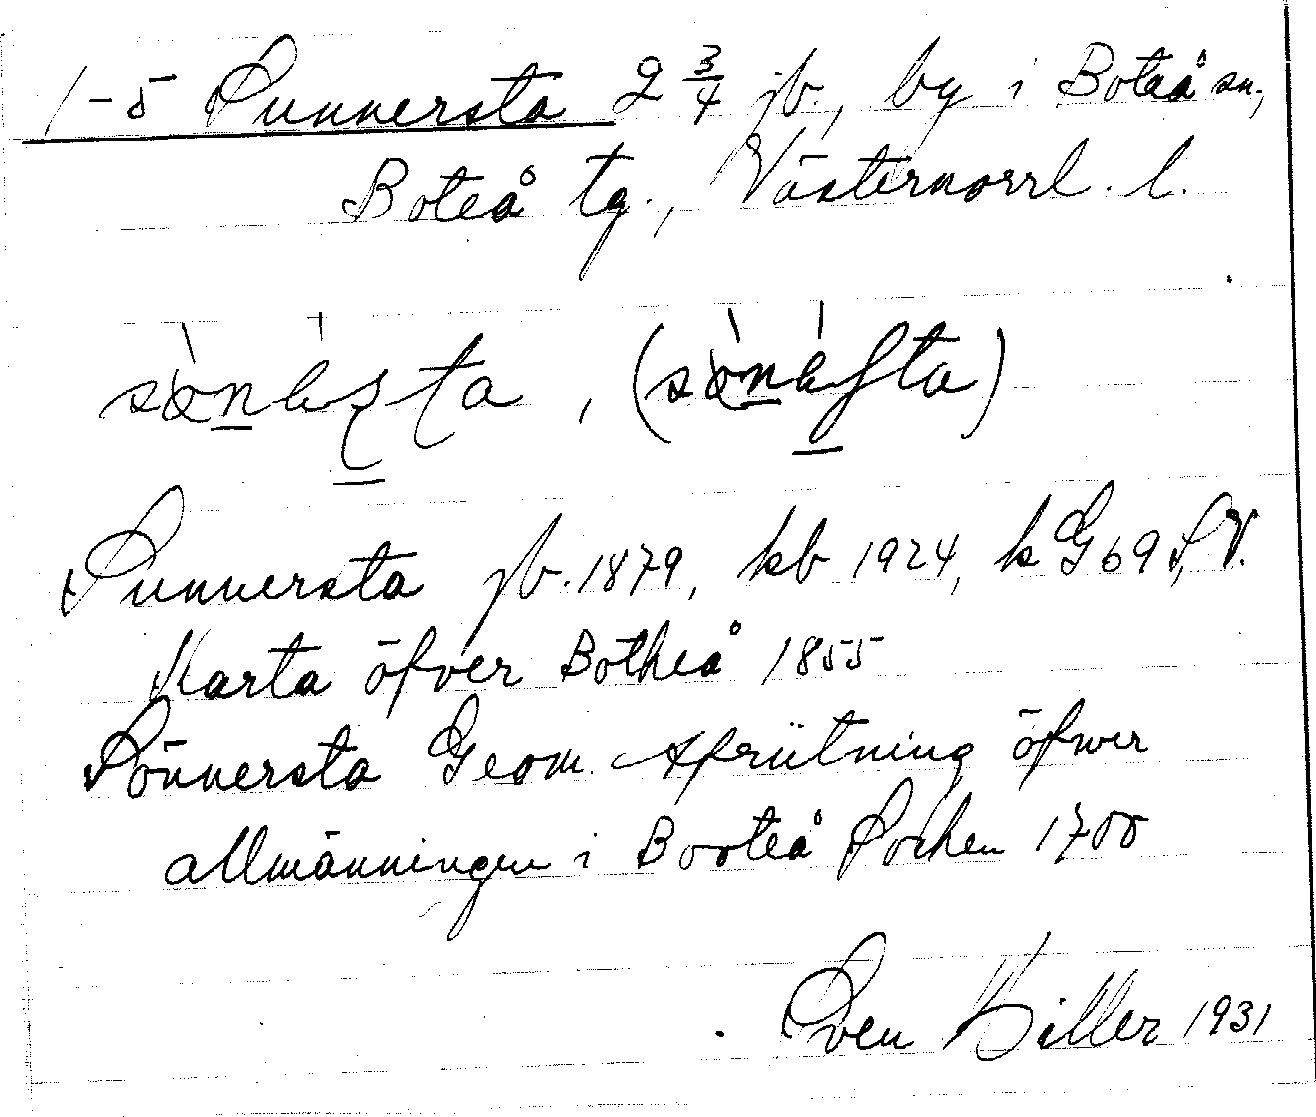 1-5 Sunnersta 2 3/4 jb., by i Boteå sn.,
Boteå tg., Västernorrl. l.
Sunnersta jb. 1879, kb 1924, k G 69 S, V.
Karta öfver Botheå 1855
Sönnersta Geom. Afriitning öfwer
allmänningen i Booteå Sochen 1700
Sven Hiller 1931